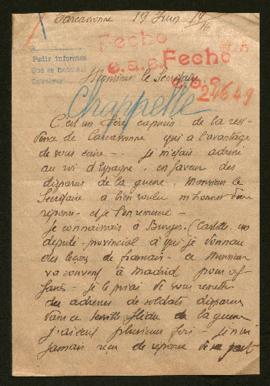 Carcassonne 19 Juin 19
Fecho
Fecho
Pedir informes
e.a.p.
22649
Monsieur le Secrétaire
Chappelle
C'est un
de la
de Carcassonne qui a l'avantage
de vous écrire je m'étais adressé
au roi d'Espagne, en faveur des
disparus de la guerre, Monsieur le
Secrétaire a bien voulu m'honorer d'une
réponse et je l'en remercie
Je connaissais à Burgos (Castille) un
député provincial à qui je donnais
des leçons de français ce Monsieur
va souvent à Madrid pour af
faires je le priai de vous remettre
des adresses de soldats disparus
dans ce terrible fléau de la guerre
j'écrivis plusieurs fois je n'ai
jamais reçu de réponse